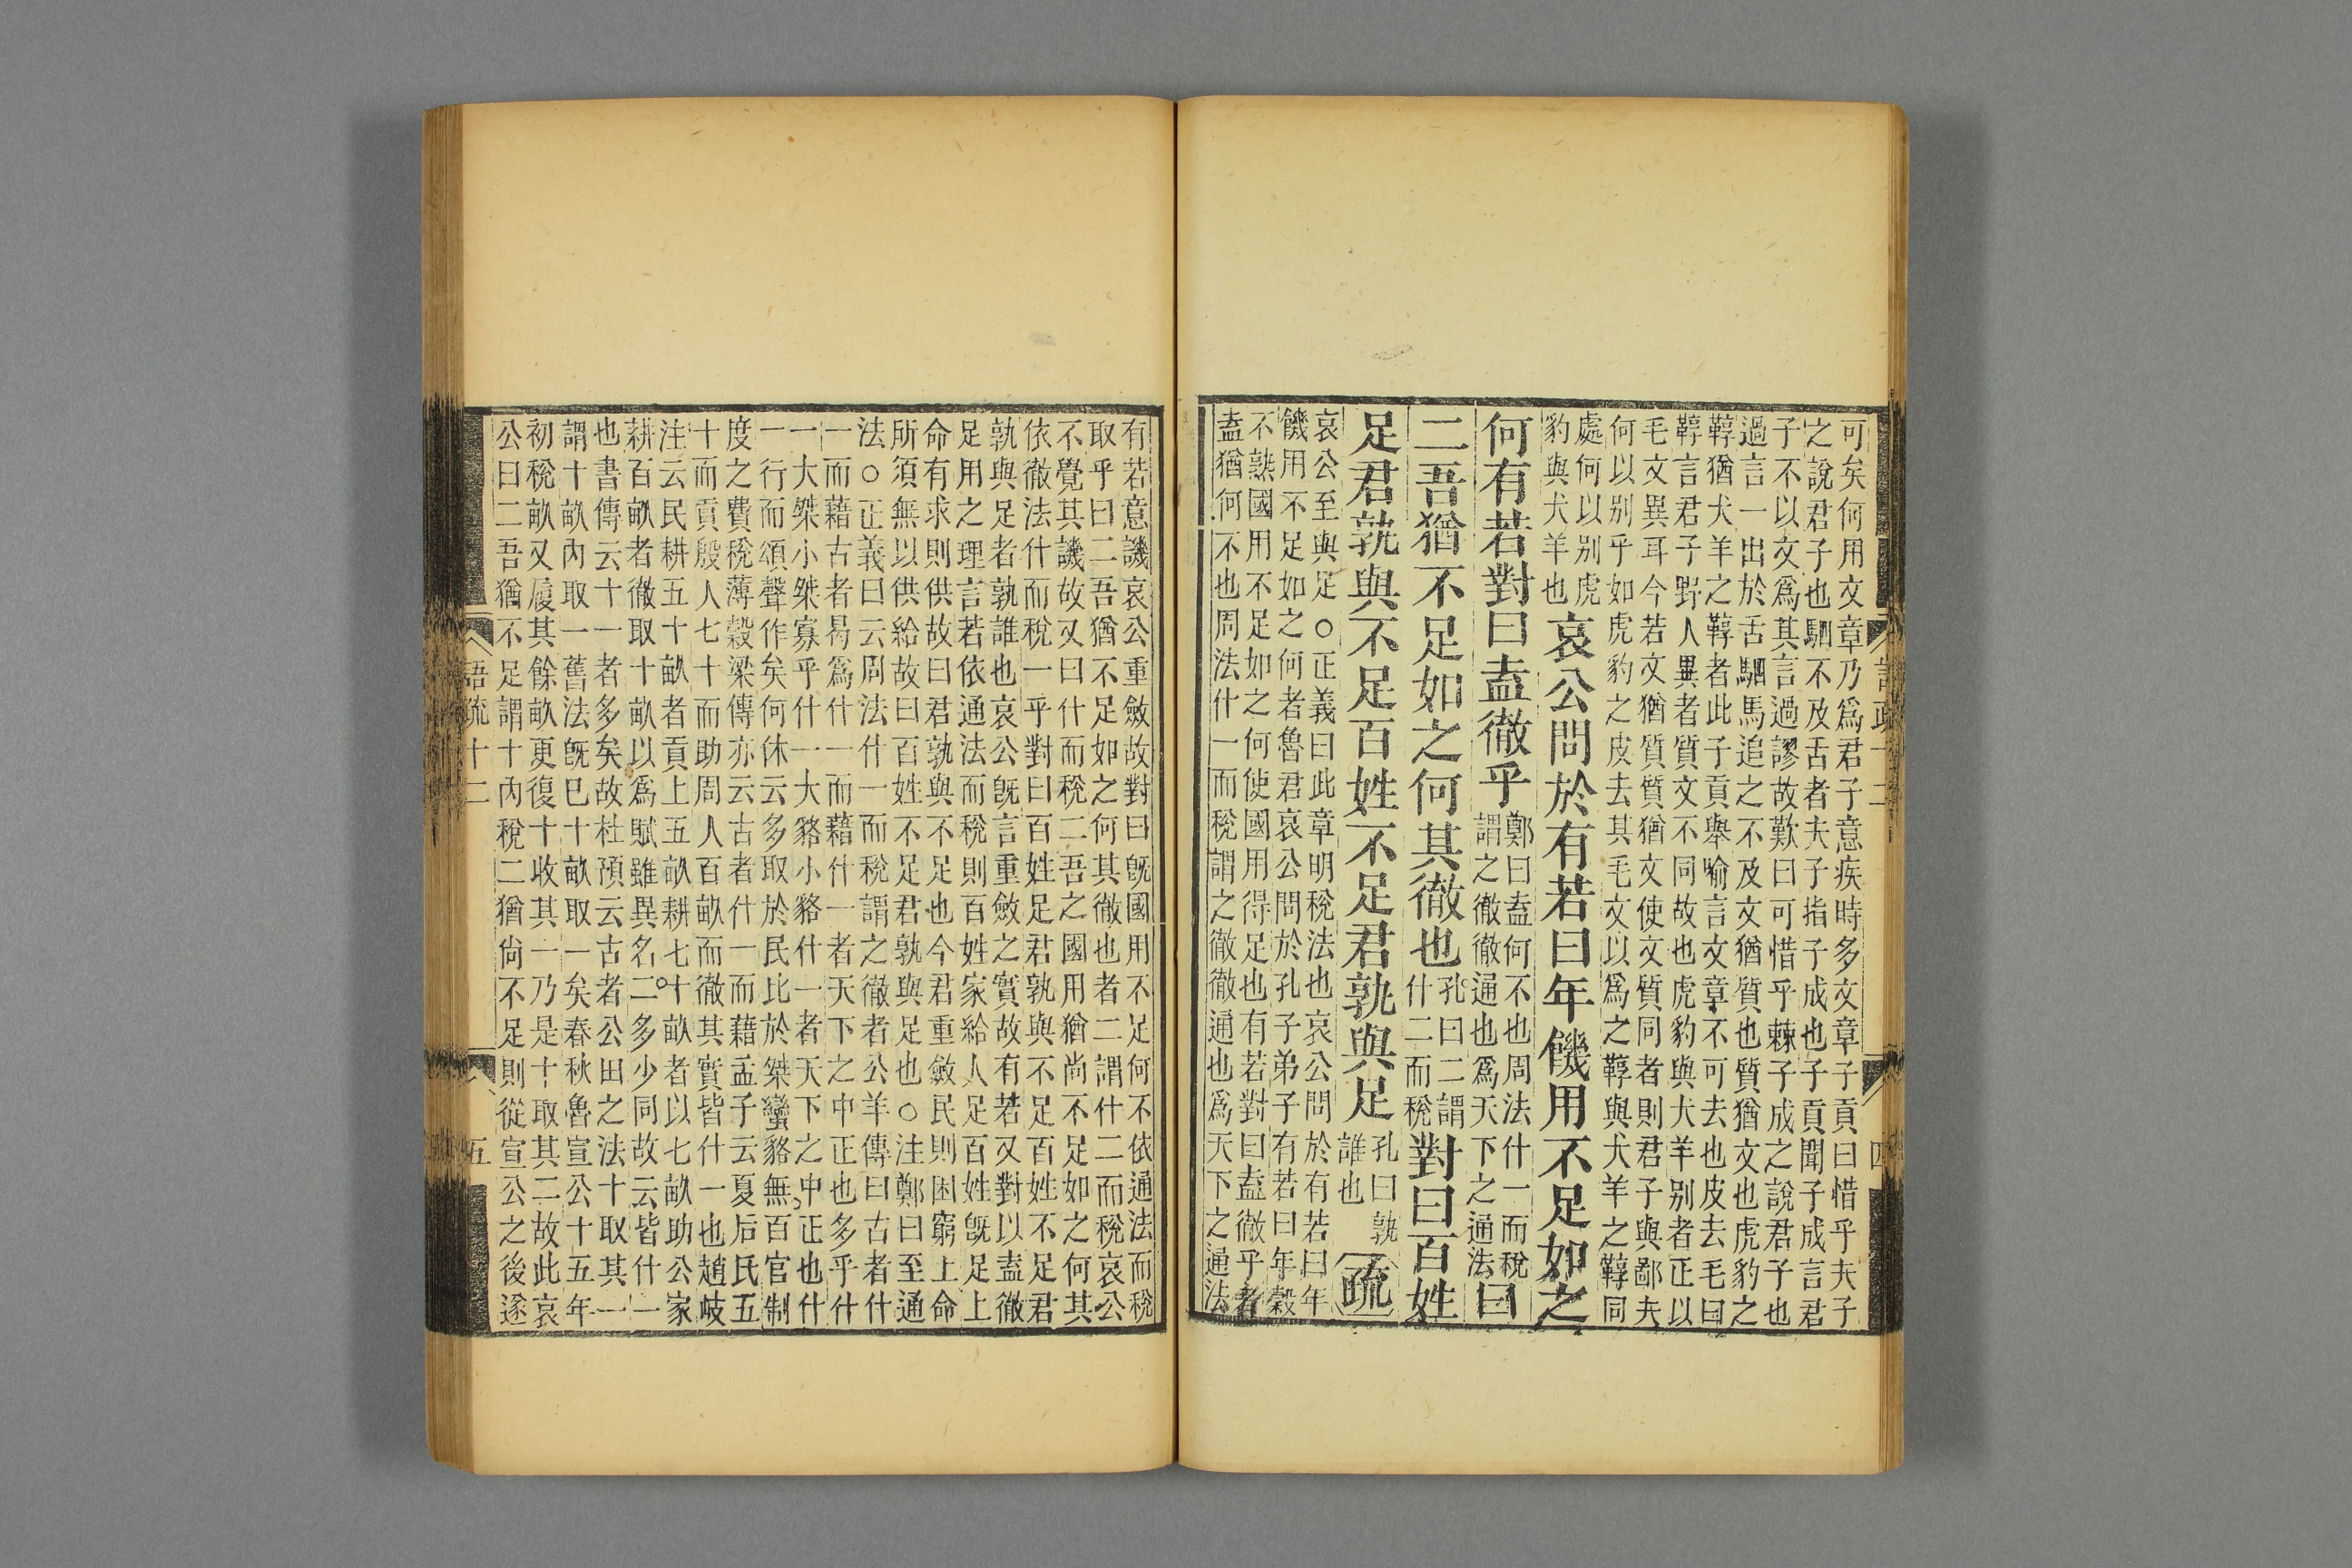 可矣何用文章乃爲君子意疾時多文章子貢曰惜乎夫子
之說君子也駟不及舌者夫子指子成也子貢聞子成言君
子不以文爲其言過謬故歎曰可惜乎棘子成之說君子也
過言一出於舌駟馬追之不及文猶質也質猶文也虎豹之
鞟猶犬羊之鞟者此子貢舉喻言文章不可去也皮去毛曰
鞟言君子野人異者質文不同故也虎豹與犬羊别者正以
毛文異耳今若文猶質質猶文使文質同者則君子與鄙夫
何以别乎如虎豹之皮去其毛文以爲之鞟與犬羊之鞟同
處何以别虎
豹與犬羊也
哀公問於有若曰年饑用不足如之
何有若對曰盍徹乎
鄭曰盍何不也周法什一而稅
謂之徹徹通也爲天下之通法
曰
二吾猶不足如之何其徹也
孔曰二謂
什二而稅
對曰百姓
足君孰與不足百姓不足君孰與足
孔曰孰
誰也
疏
哀公至與足○正義曰此章明稅法也哀公問於有若曰年
饑用不足如之何者魯君哀公問於孔子弟子有若曰年穀
不熟國用不足如之何使國用得足也有若對曰盍徹乎者
盍猶何不也周法什一而稅謂之徹徹通也爲天下之通法
語疏十二
四
有若意譏哀公重斂故對曰旣國用不足何不依通法而稅
取乎曰二吾猶不足如之何其徹也者二謂什二而稅哀公
不覺其譏故又曰什而稅二吾之國用猶尚不足如之何其
依徹法什而稅一乎對曰百姓足君孰與不足百姓不足君
孰與足者孰誰也哀公旣言重斂之實故有若又對以盍徹
足用之理言若依通法而稅則百姓家給人足百姓旣足上
命有求則供故曰君孰與不足也今君重斂民則困窮上命
所須無以供給故曰百姓不足君孰與足也○注鄭曰至通
法○正義曰云周法什一而稅謂之徹者公羊傳曰古者什
一而藉古者曷爲什一而藉什一者天下之中正也多乎什
一大桀小桀寡乎什一大貉小貉什一者天下之中正也什
一行而頌聲作矣何休云多取於民比於桀蠻貉無百官制
度之費稅薄穀梁傳亦云古者什一而藉孟子云夏后氏五
十而貢殷人七十而助周人百畝而徹其實皆什一也趙岐
注云民耕五十畝者貢上五畝耕七十畝者以七畝助公家
耕百畝者徹取十畝以爲賦雖異名二多少同故云皆什一
也書傳云十一者多矣故杜預云古者公田之法十取其一
謂十畝內取一舊法旣已十畝取一矣春秋魯宣公十五年
初稅畝又履其餘畝更復十收其一乃是十取其二故此哀
公曰二吾猶不足謂十內稅二猶尚不足則從宣公之後遂
語疏十二
五